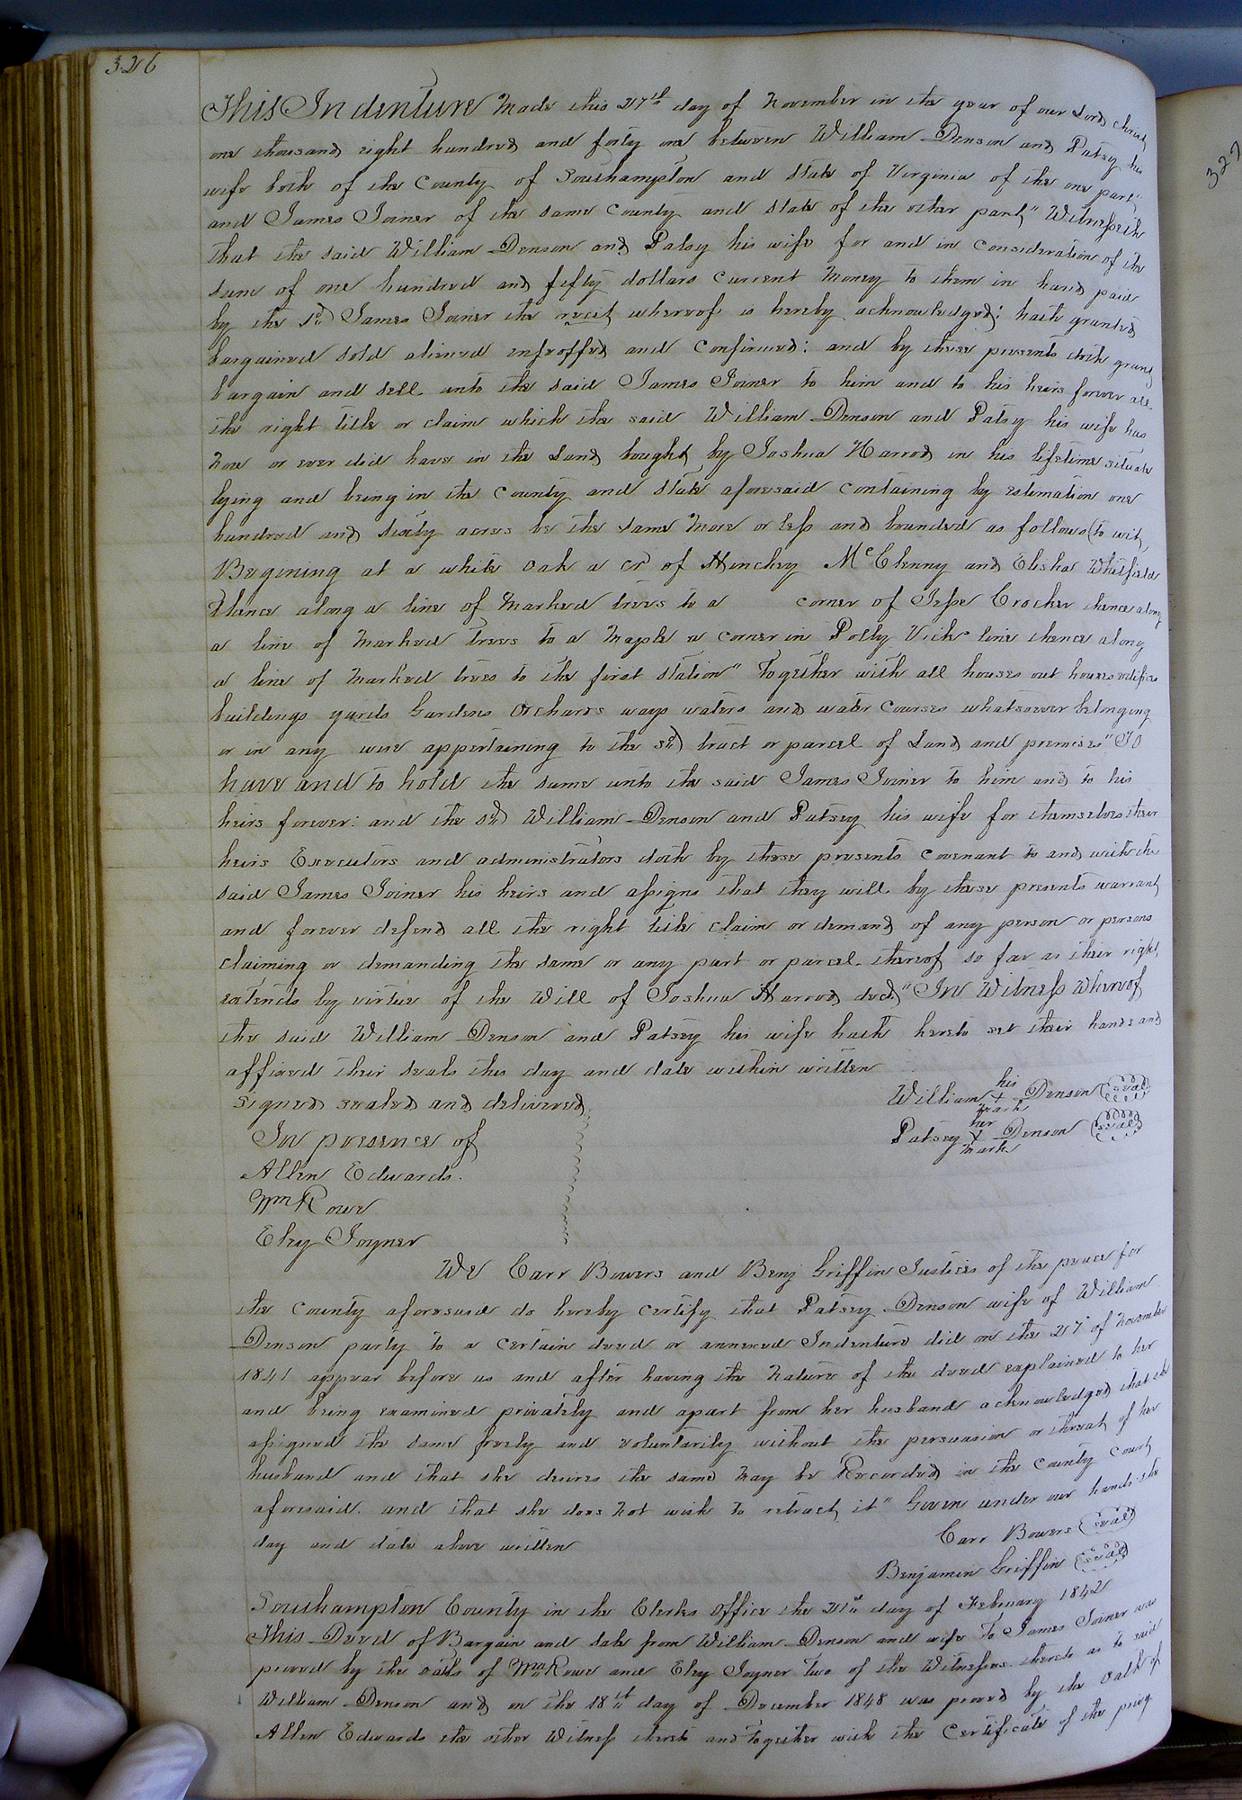 326
This Indenture Made this 27th day of November in the year of our Lord christ
one thousand eight hundred and forty one between William Denson and Patsey his
wife both of the County of Southampton and State of Virginia of the one part
and James Joiner of the same County and State of the other part" Witnesseth
that the said William Denson and Patsy his wife for and in consideration of the
sum of one hundred and fifty dollars current Money to them in hand paid
by the sd James Joiner the recet whereof is hereby acknowledged; hath granted
bargained sold aliened enfeoffed and confirmed: and by these presents doth grant
bargain and sell unto the said James Joiner to him and to his heirs forever all
the right title or claim which the said William Denson and Patsy his wife has
now or ever did have in the Land bought by Joshua Harrod in his lifetime situate
lying and being in the County and State aforesaid containing by estimation one
hundred and sixty acres be the same More or less and bounded as follows (to wit,
Begining at a white oak a cr of Hinchey McClenny and Elisha Whitfield
thence along a line of Marked trees to a corner of Jesse Crocker thence along
a line of Marked trees to a Maple a corner in Polly Vick line thence along
a line of Marked trees to the first station" Together with all houses out houses edifices
buildings yards Gardens Orchards ways waters and water Courses whatsoever belonging
or in any wise appertaining to the sd tract or parcel of Land and premises" TO
have and to hold the same unto the said James Joiner to him and to his
heirs forever: and the sd William Denson and Patsey his wife for themselves their
heirs Executors and administrators doth by these presents covenant to and with the
said James Joiner his heirs and assigns that they will by these presents warrant
and forever defend all the right title claim or demand of any person or persons
claiming or demanding the same or any part or parcel thereof so far as their right
extends by virtue of the Will of Joshua Harrod decd" In Witness Whereof
the said William Denson and Patsey his wife hath hereto set their hands and
affixed their seals this day and date within written
Signed sealed and delivered
In presence of
Allen Edwards.
Wm Rowe
Eley Joyner
William his + mark Denson (seal)
Patsey her + mark Denson (seal)
We Carr Bowers and Benj Griffin Justices of the peace for
the County aforesaid do hereby certify that Patsey Denson wife of William
Denson party to a certain deed or annexed Indenture did on the 27 of November
1841 appear before us and after having the Nature of the deed explained to her
and being examined privately and apart from her husband acknowledged that she
assigned the same freely and voluntarily without the persuasion or threat of her
husband and that she desires the same may be Recorded in the County Court
aforesaid. and that she does Not wish to retract it" Given under our hands the
day and date above written
Carr Bowers (seal)
Benjamin Griffin (seal)
Southampton County in the Clerks Office the 21st day of February 1842
This Deed of Bargain and sale from William Denson and wife To James Joiner was
proved by the oaths of Wm Rowe and Eley Joyner two of the Witnesses thereto as to said
William Denson and on the 18th day of December 1848 was proved by the oath of
Allen Edwards the other Witness thereto and together with the Certificate of the privy
327